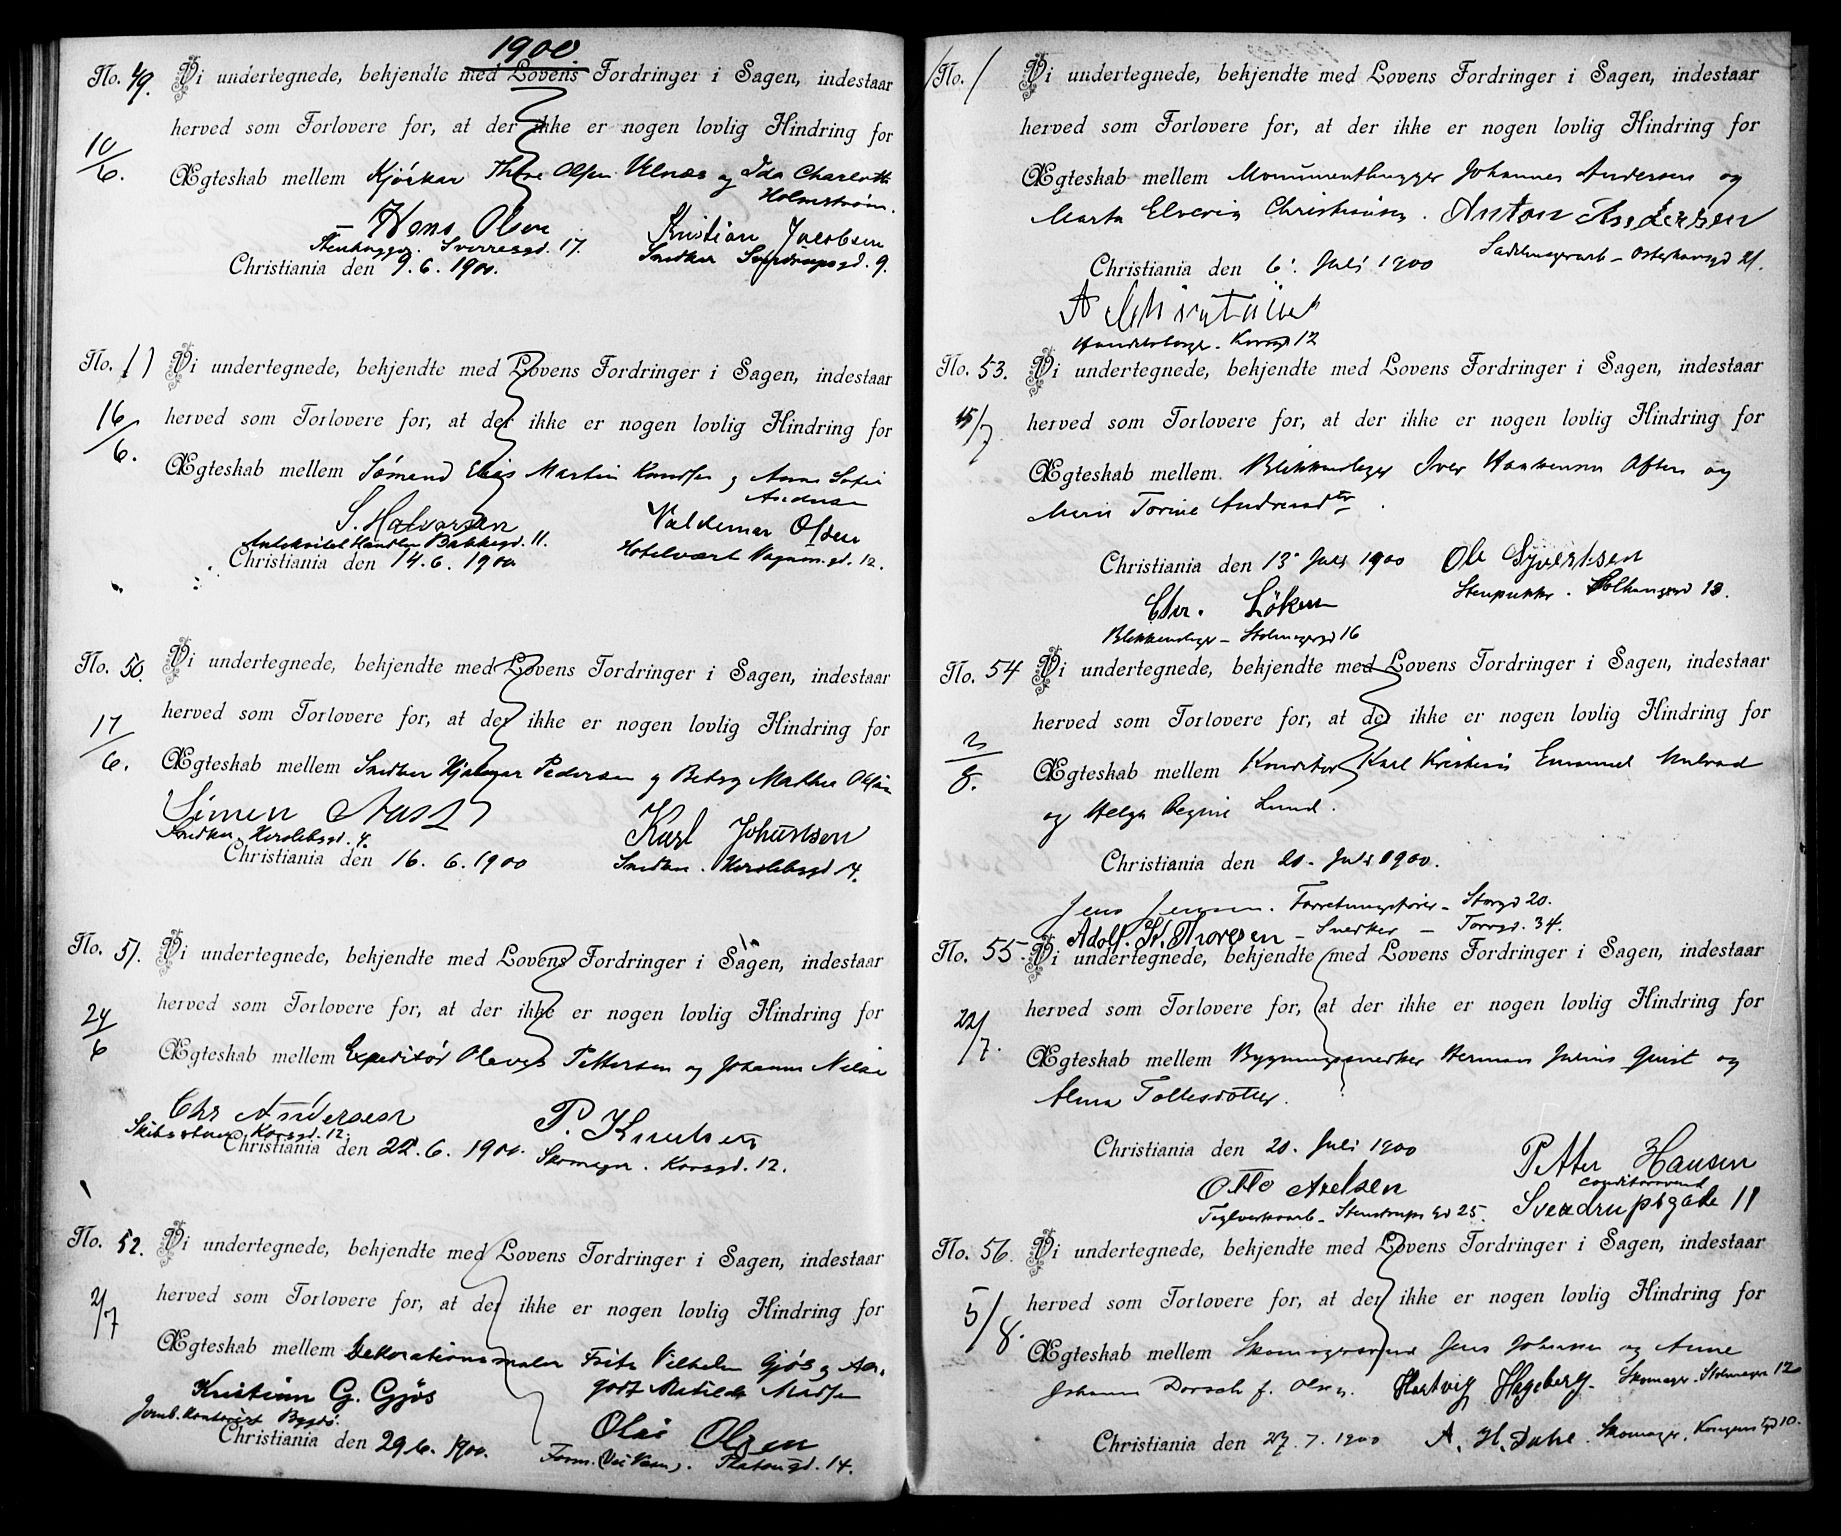 1900.
No. 49. Vi undertegnede, bekjendte med Lovens Fordringer i Sagen, indestaar
10/6. herved som Forlovere for, at der ikke er nogen lovlig Hindring for
Ægteskab mellem Kjörkar Thore Olsen Ulnæs og Ida Charlotte
Holmström.
Hans Olsen Kristian Jacobsen
Stenhugger. Sverresgd. 17. Snedker Sverdrupsgd. 9.
Christiania den 9. 6. 1900.
No. 11 Vi undertegnede, bekjendte med Lovens Fordringer i Sagen, indestaar
16/6. herved som Forlovere for, at der ikke er nogen lovlig Hindring for
Ægteskab mellem Sømand Elias Martin Knudsen og Anna Sofie
Andersen
S. Halvorsen Valdemar Olsen
Antikvitetshandler Bakkegd. 11. Hotelvært Vognm.gd. 12.
Christiania den 14. 6. 1900
No. 50. Vi undertegnede, bekjendte med Lovens Fordringer i Sagen, indestaar
17/6. herved som Forlovere for, at der ikke er nogen lovlig Hindring for
Ægteskab mellem Snedker Hjalmar Pedersen og Betsy Mathea Olsen
Simen Aas Karl Johansen
Snedker Herslebsgd. 4. Snedker. Herslebsgd 4.
Christiania den 16. 6. 1900
No. 51. Vi undertegnede, bekjendte med Lovens Fordringer i Sagen, indestaar
24/6 herved som Forlovere for, at der ikke er nogen lovlig Hindring for
Ægteskab mellem Expeditör Oleves Pettersen og Johanne Nilsen
Chr Andersen P. Knutsen
Korsgd. 12. Skomager. Korsgd. 12.
Christiania den 22. 6. 1900.
No. 52. Vi undertegnede, bekjendte med Lovens Fordringer i Sagen, indestaar
2/7 herved som Forlovere for, at der ikke er nogen lovlig Hindring for
Ægteskab mellem Dekorationsmaler Fritz Vilhelm Gjös og
Matilde Madsen
Kristian G. Gjös
Jernb. Kontorist Bygdö. Olai Olsen
Christiania den 29 6. 1900. Form. Platousgd. 14.
No. 1 Vi undertegnede, bekjendte med Lovens Fordringer i Sagen, indestaar
herved som Forlovere for, at der ikke er nogen lovlig Hindring for
Ægteskab mellem Monumenthugger Johannes Andersen og
Marta Elveria Christiansen. Anton Andersen
Christiania den 6. Juli 1900 Sadelmagerarb - Osterhausgd 21.
A Christensen
Korsgd 12
No. 53. Vi undertegnede, bekjendte med Lovens Fordringer i Sagen, indestaar
15/7. herved som Forlovere for, at der ikke er nogen lovlig Hindring for
Ægteskab mellem. Blikkenslager Iver Haakensen Often og
Marie Torine Andreasdtr.
Christiania den 13. Juli 1900 Ole Syvertsen
Chr. Löken Stenpukker. 13.
Blikkenslager - Stolmagergd 16
No. 54 Vi undertegnede, bekjendte med Lovens Fordringer i Sagen, indestaar
herved som Forlovere for, at der ikke er nogen lovlig Hindring for
/8. Ægteskab mellem Konditor Karl Kristian Emanuel Mulvad
og Helga Regine Lund.
Christiania den 20. Juli 1900.
Jens Jensen. Forretningsfører - Storgd 20.
Adolf. K. Thoresen - Snedker - Torvgd. 34.
No. 55 Vi undertegnede, bekjendte med Lovens Fordringer i Sagen, indestaar
22/7. herved som Forlovere for, at der ikke er nogen lovlig Hindring for
Ægteskab mellem Bygningssnedker Herman Julius Quist og
Alma Tollesdotter.
Christiania den 20. Juli 1900 Petter Hansen
Otto Axelsen Conditorsvend
Teglverksarb - Stenstrups Gd 25. Sverdrupsgade 11
No. 56. Vi undertegnede, bekjendte med Lovens Fordringer i Sagen, indestaar
5/8. herved som Forlovere for, at der ikke er nogen lovlig Hindring for
Ægteskab mellem Skomagersvend Jens Johansen og Anne
Johanne Dorsch f. Olsen. Hartvig Hageberg. Skomager. Stolmagergd 12
Christiania den 27. 7. 1900 A. H. Dahl. Skomager, Kongens Gd 10.